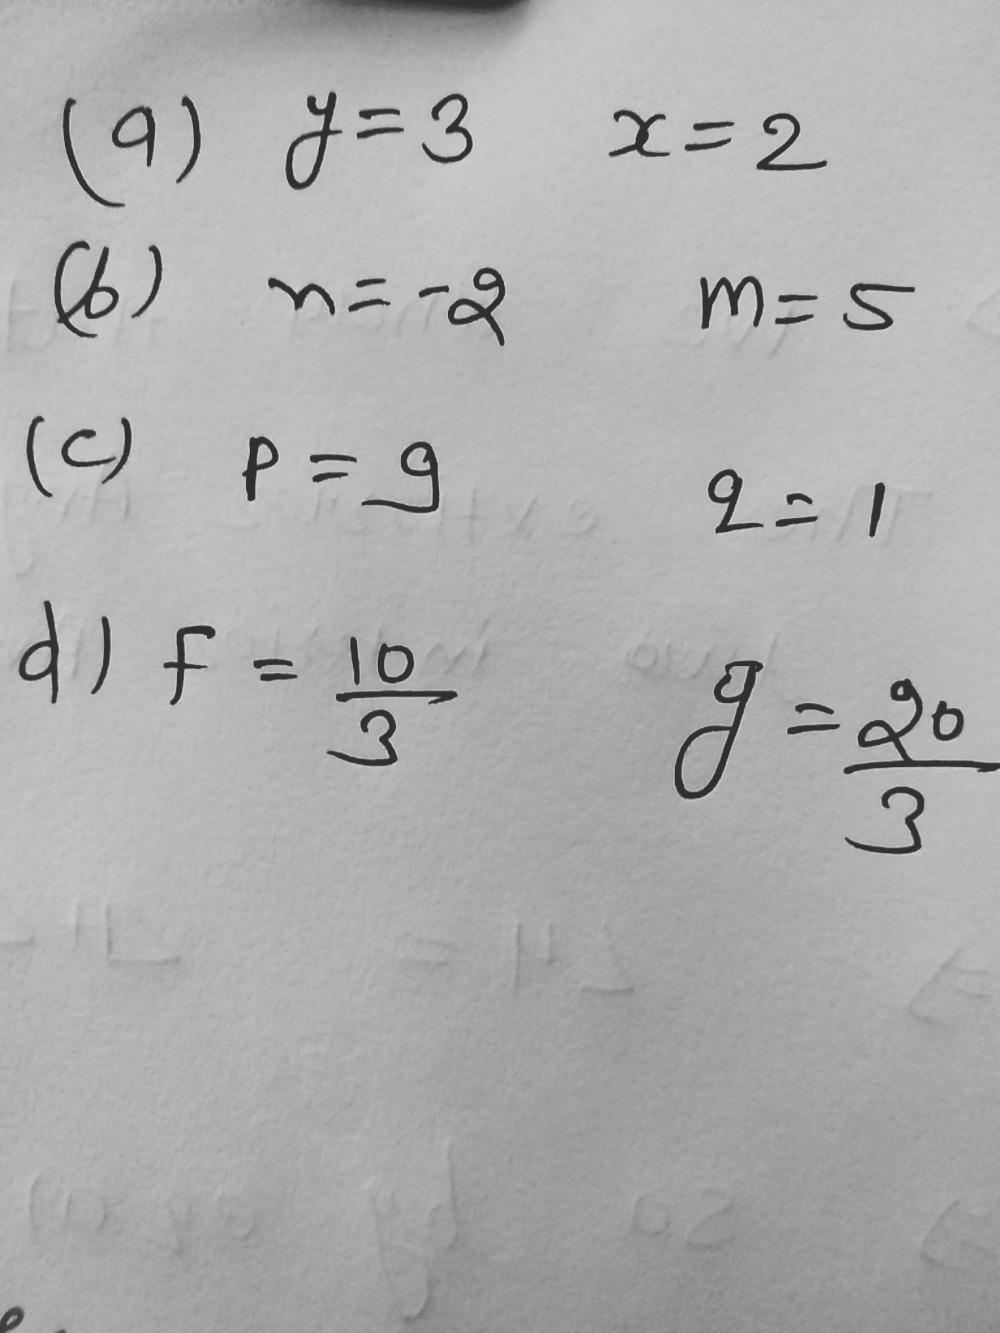 (a) y = 3 x = 2
(b) n = -2 m = 5
(c) P = 9 q = 1
d) f = 10/3 g = 20/3